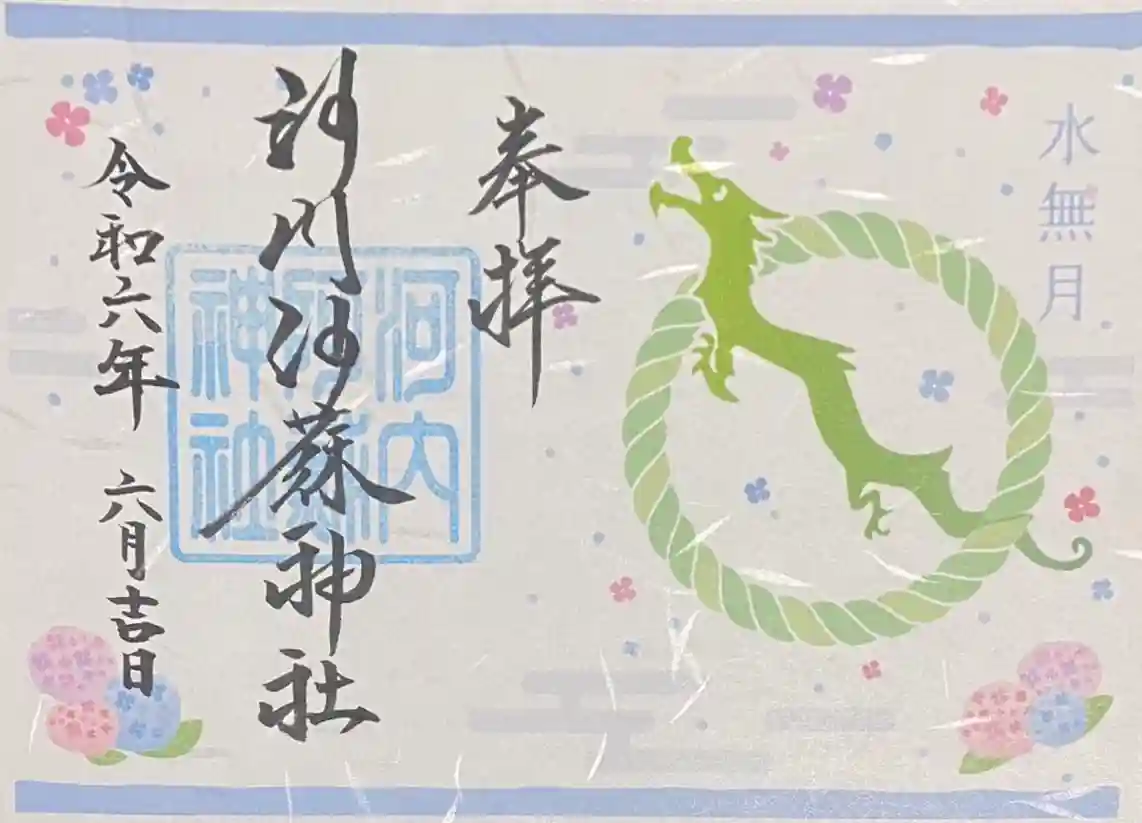 水無月
奉拝
河内阿蘇神社
河内
阿蘇
神社
令和六年 六月吉日